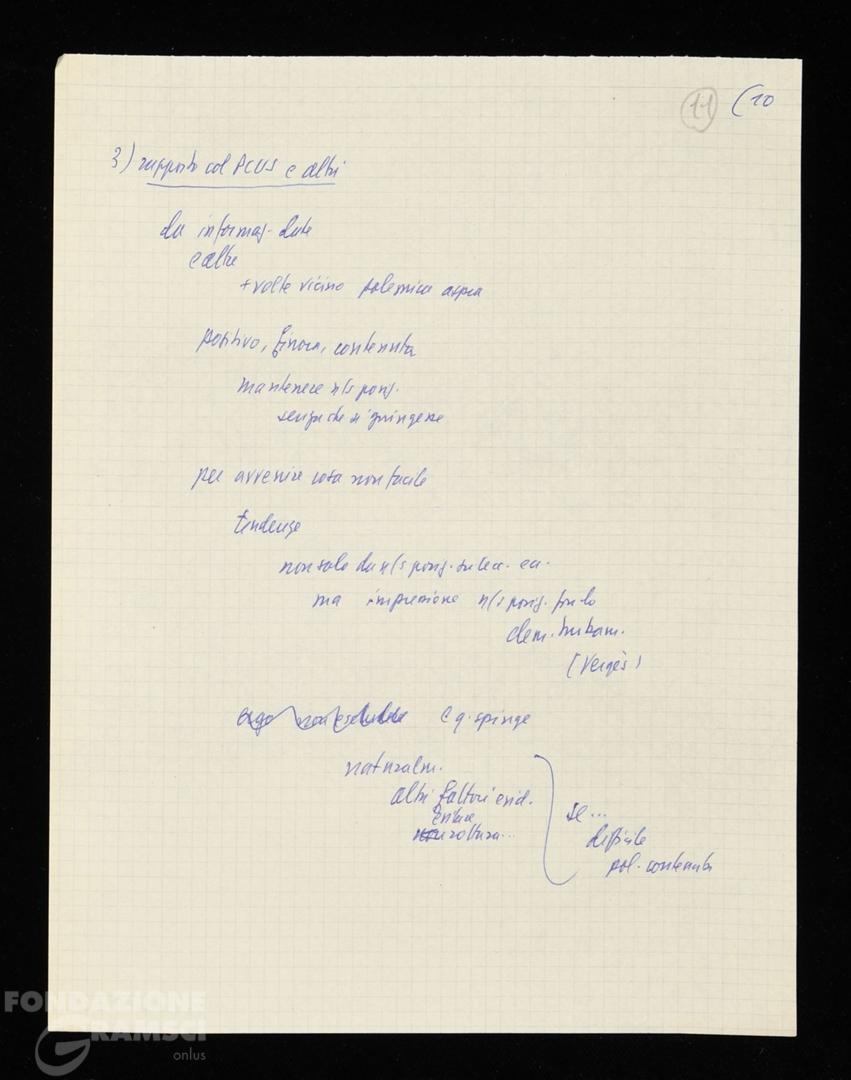 11 (10
3) rapporto col PCUS e altri
da informaz. date
e altre
+ volte vicino polemica aspra
positivo, finora, contenuta
mantenere n/s posiz.
senza che si spingesse
per avvenire cosa non facile
tendenze
non solo da n/s posiz.
ma impressione n/s posiz.
elem. turbam.
(Vergès)
e q. spinge
naturalm.
altri fattori evid.
evitare
rottura...
se...
difficile
pol. contenuta
FONDAZIONE
GRAMSCI
onlus